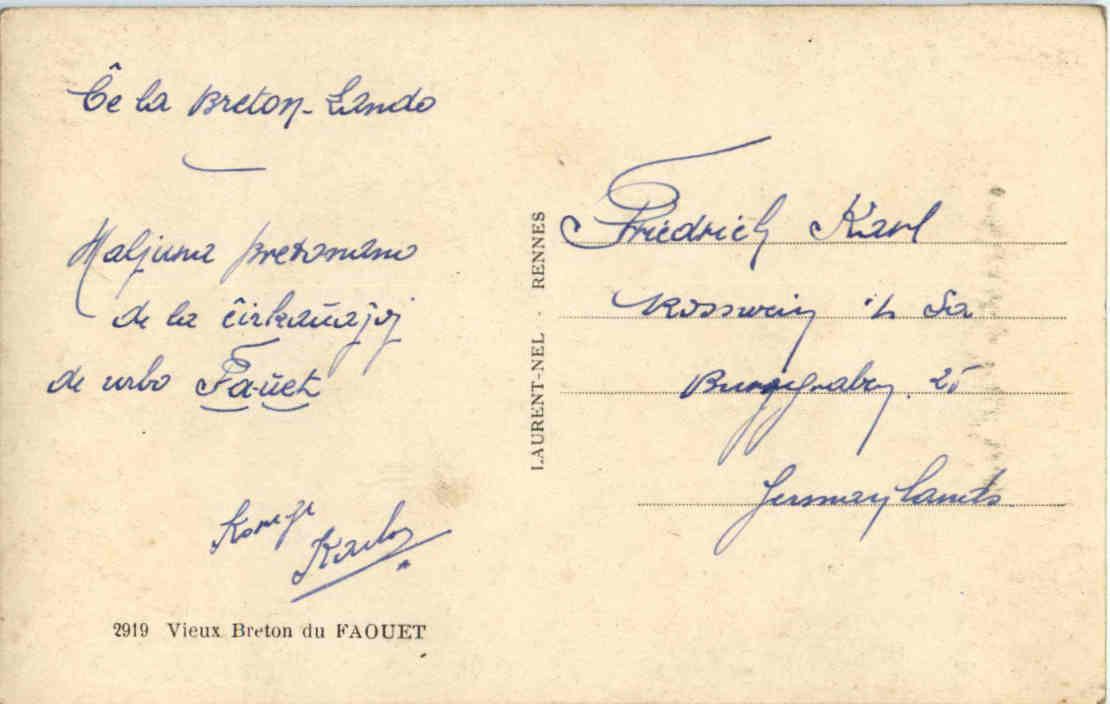 Ĉe la Breton-Lando
Maljuna bretonano
de la ĉirkaŭaĵoj
de urbo Fa-ŭet
Korege
Karlo
2919 Vieux Breton du FAOUET
LAURENT-NEL - RENNES
Friedrich Karl
Rosswein i/ Sa
Burggraben 25